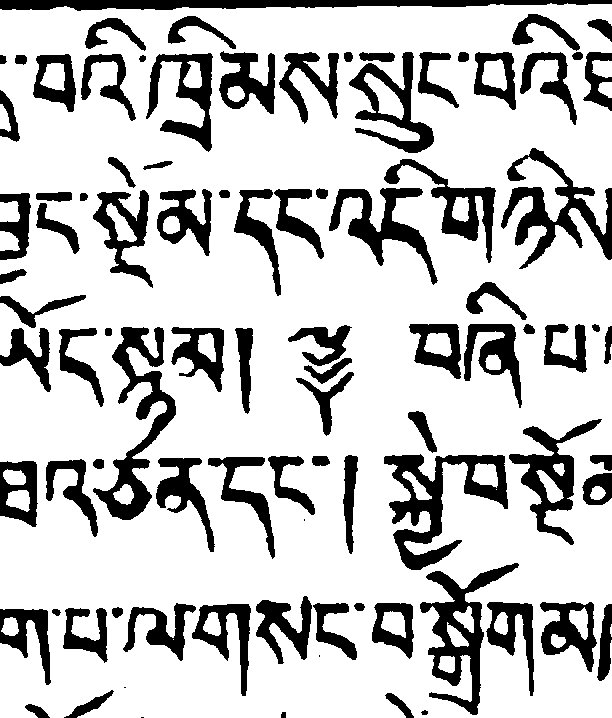 བའི་ཁྲིམས་སྲུང་བའི་
སྡོམ་དང་འདི་གཉིས
ཡོད་སྙམ། བཞི་པ་
ཐའ་ཅན་དང་། སྐྱེ་བ་སྔོན
ག་པ་ལ་གསང་བ་སྒྲོགམ།